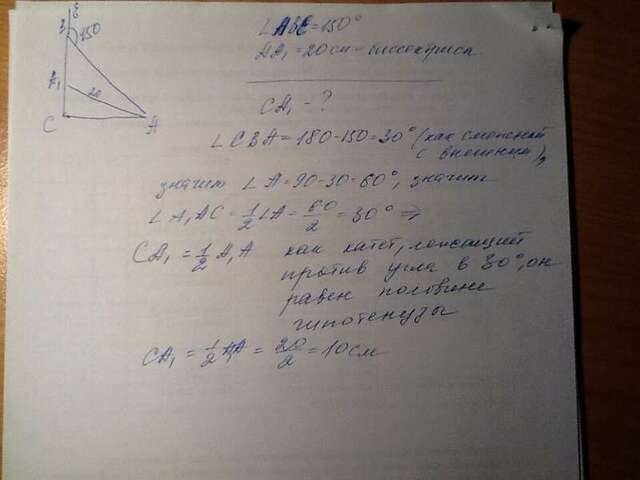 ∠ABE=150°
AA₁=20см-биссектриса
CA₁-?
∠CBA=180-150=30° (как смежный
с внешним),
значит ∠A=90-30=60°, значит
∠A₁AC=½∠A=60/2=30° ⇒
CA₁=½A₁A как катет, лежащий
против угла в 30°, он
равен половине
гипотенузы
CA₁=½A₁A=20/2=10см
150
20
A₁
C
A